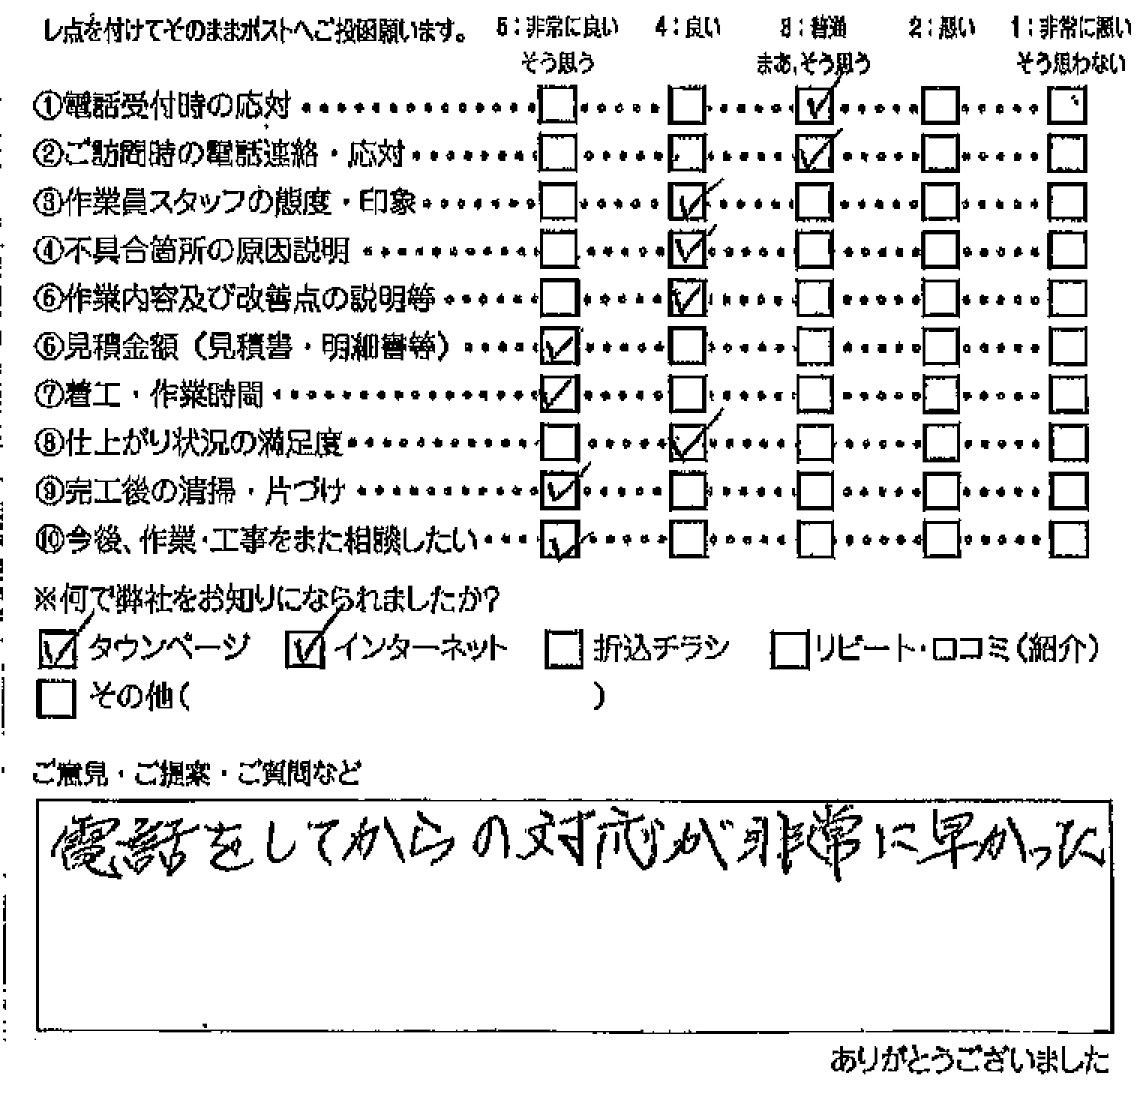 レ点を付けてそのままポストへご投函願います。 5:非常に良い 4:良い 3:普通 2:悪い 1:非常に悪い
そう思う まあ、そう思う そう思わない
①電話受付時の応対
②ご訪問時の電話連絡・応対
③作業員スタッフの態度・印象
④不具合箇所の原因説明
⑤作業内容及び改善点の説明等
⑥見積金額(見積書・明細書等)
⑦着工・作業時間
⑧仕上がり状況の満足度
⑨完工後の清掃・片づけ
⑩今後、作業・工事をまた相談したい
※何で弊社をお知りになられましたか?
タウンページ インターネット 折込チラシ リピート・口コミ(紹介)
その他( )
ご意見・ご提案・ご質問など
電話をしてからの対応が非常に早かった
ありがとうございました